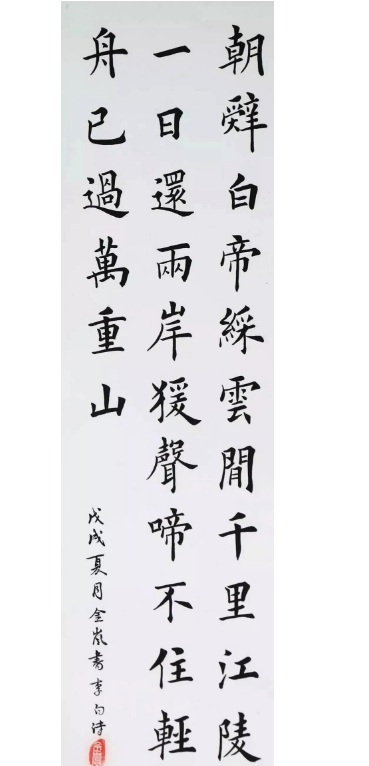 朝辤白帝綵雲閒千里江陵
一日還兩岸猨聲啼不住輕
舟已過萬重山
戊戌夏月金嵐書李白诗